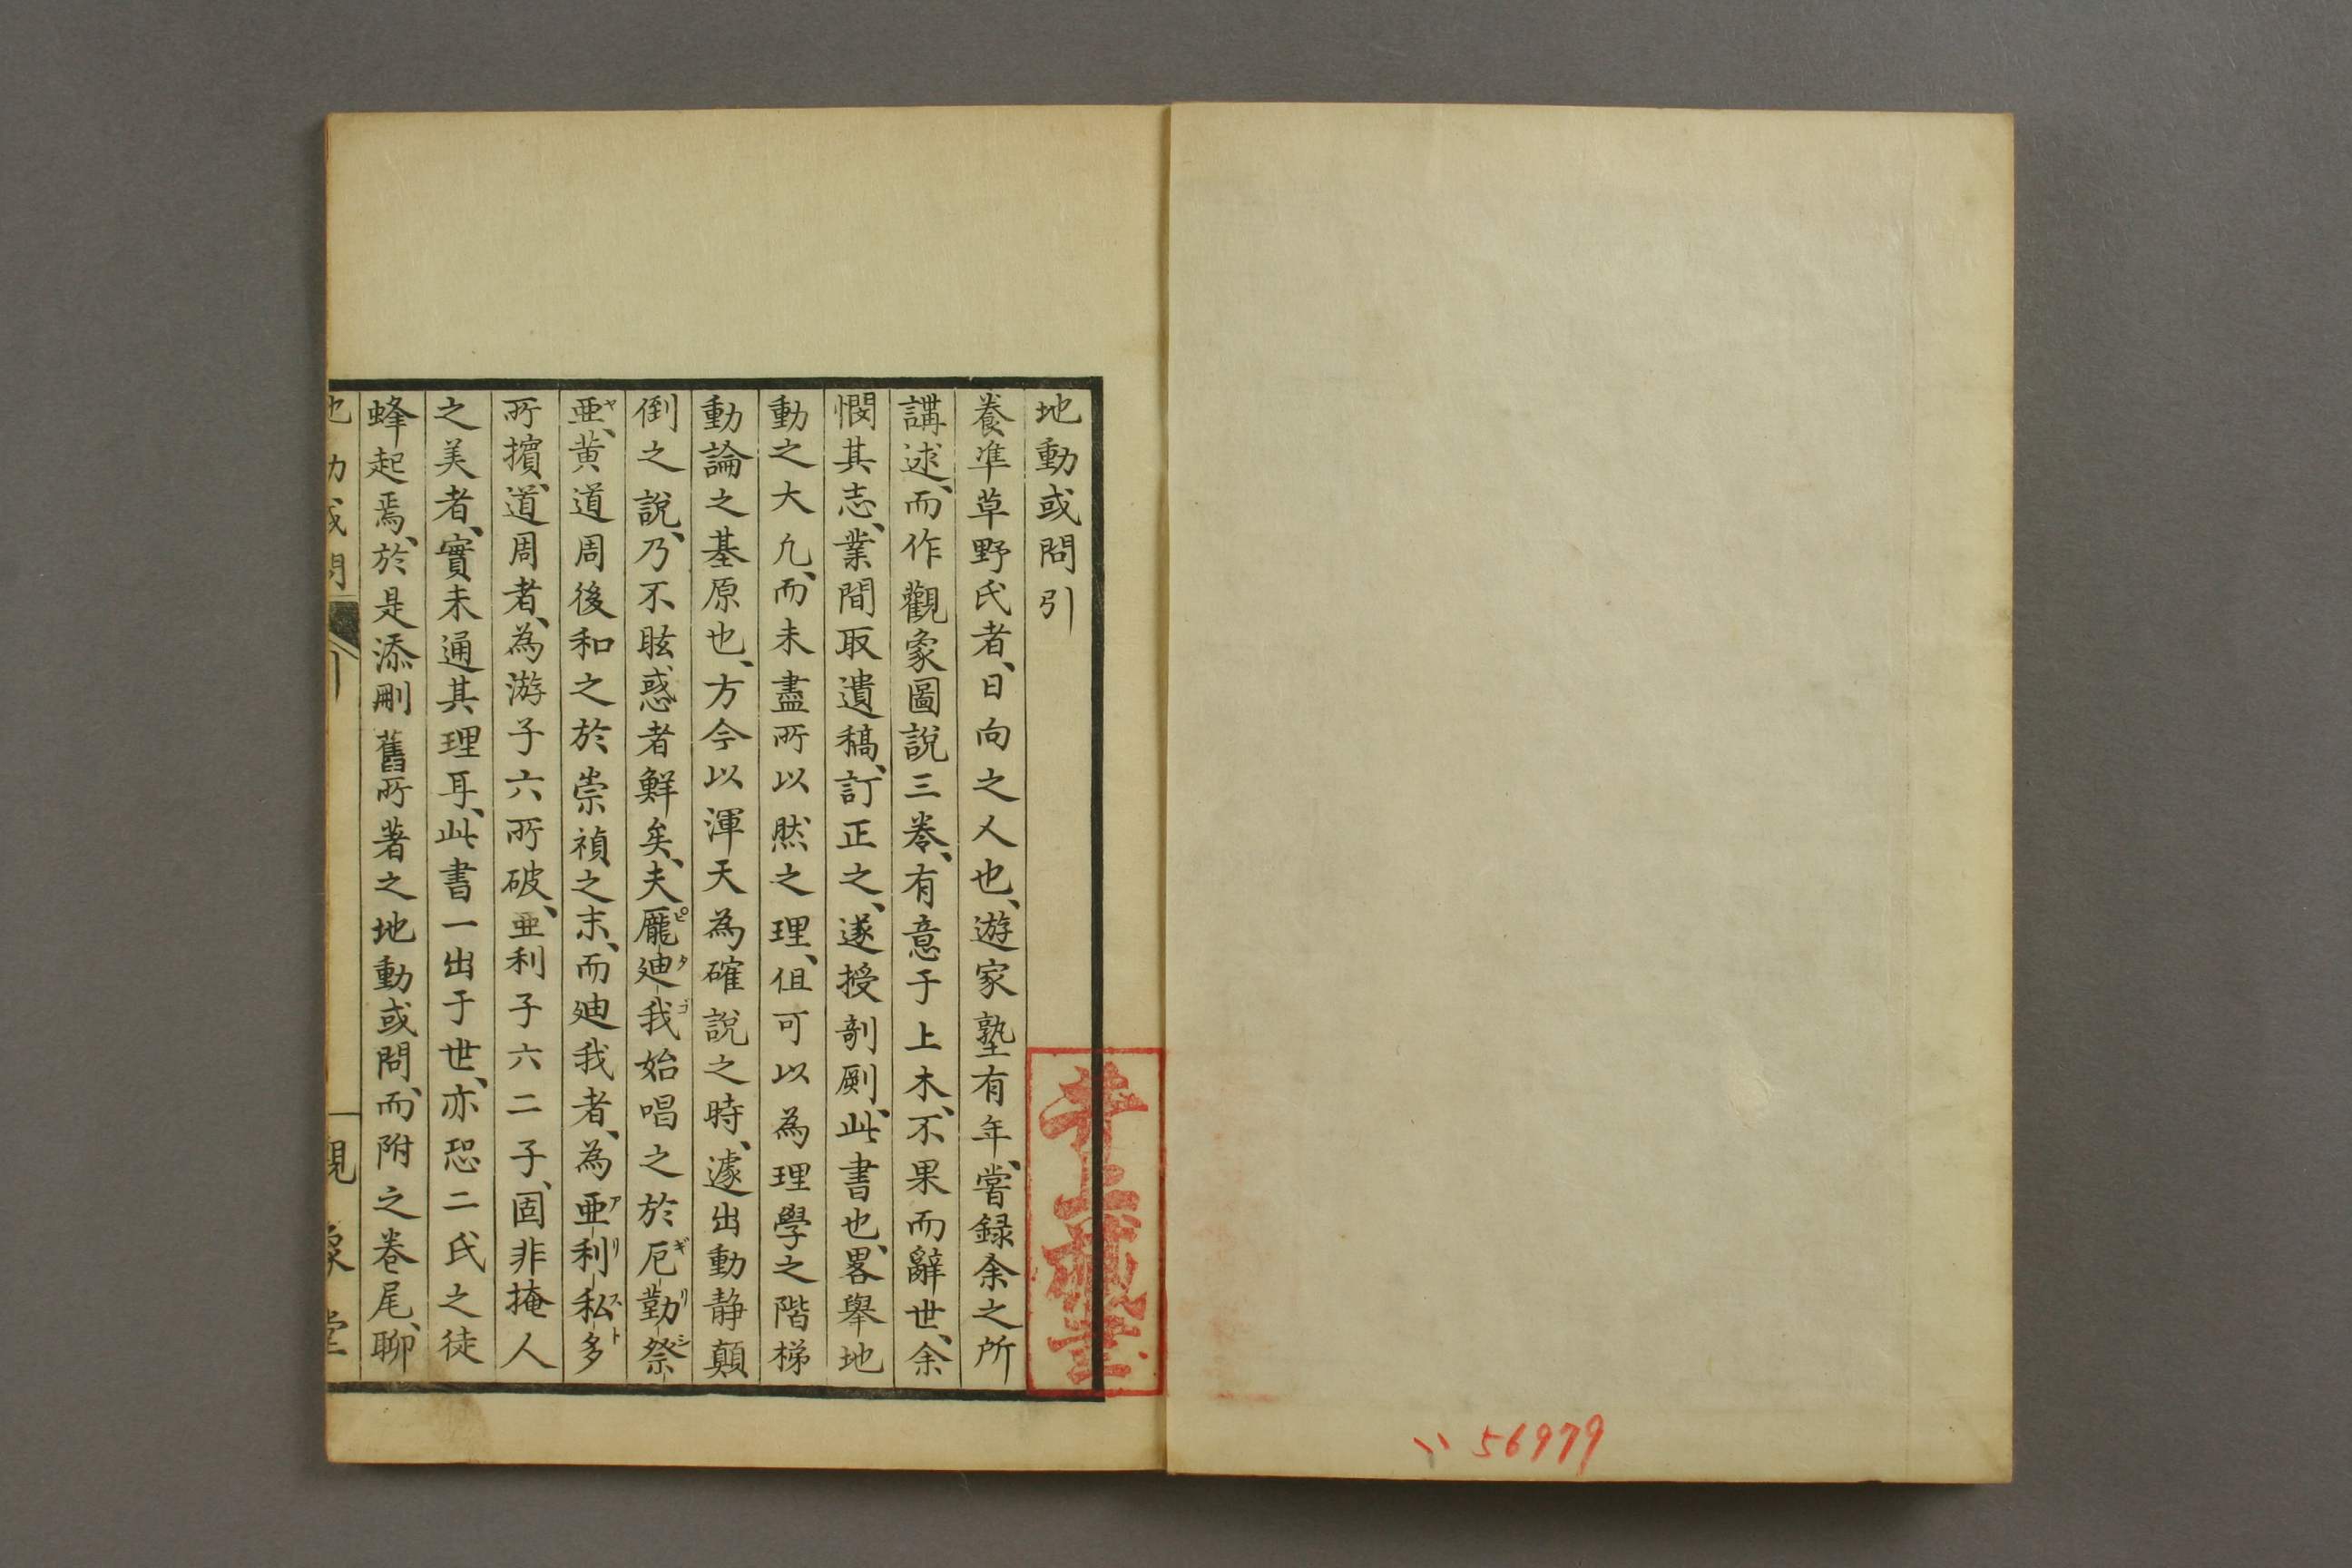 地動或問引
養準草野氏者、日向之人也、遊家塾有年、嘗録余之所
講述、而作觀象圖說三卷、有意于上木、不果而辭世、余
憫其志、業間取遺稿、訂正之、遂授剞劂、此書也、畧舉地
動之大凢、而未盡所以然之理、但可以為理學之階梯
動論之基原也、方今以渾天為確說之時、遽出動静顛
倒之說、乃不眩惑者鮮矣、夫龐ピ廸タ我ゴ始唱之於厄ギ勒リ祭シ
亜ヤ、黄道周後和之於崇禎之末、而廸我者、為亜ア利リ私ス多ト
所擯、道周者、為游子六所破、亜利子六二子、固非掩人
之美者、實未通其理耳、此書一出于世、亦恐二氏之徒
蜂起焉、於是添刪舊所著之地動或問、而附之卷尾、聊
地動或問 引 觀象堂
井上蔵書
56979